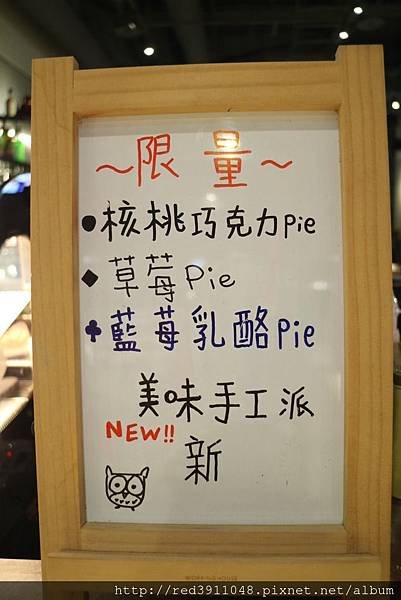 ~限量~
●核桃巧克力Pie
◆草莓Pie
♣藍莓乳酪Pie
美味手工派
NEW!!
新
WORKING HOUSE
http://red3911048.pixnet.net/album